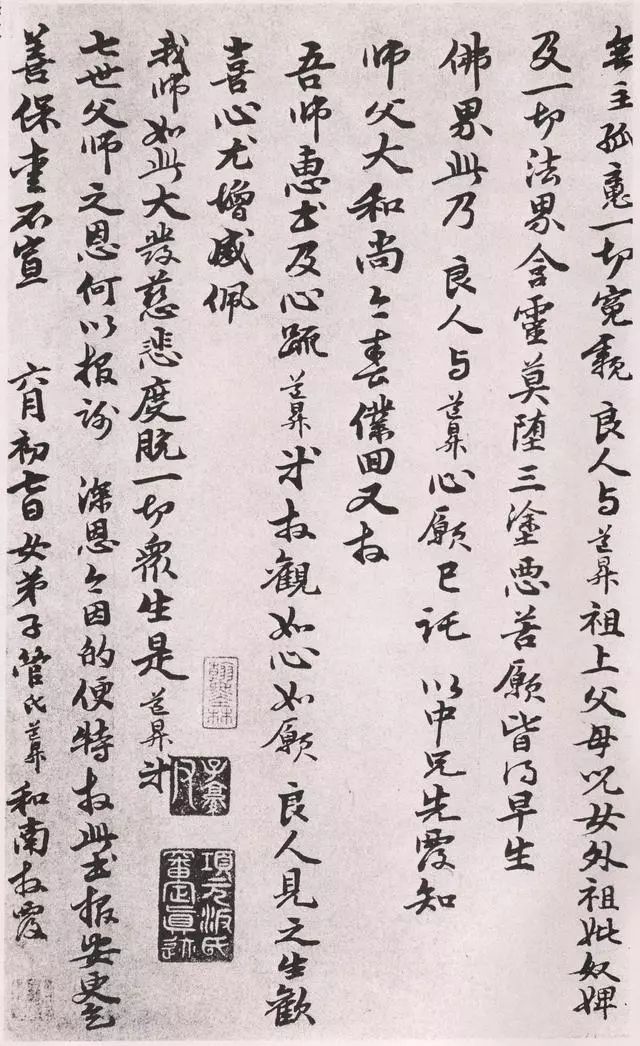 無主孤魂一切冤親 良人与道昇祖上父母兒女外祖妣奴婢
及一切法界含靈莫墮三塗惡善願皆得早生
佛界此乃 良人与道昇心願已託 以中兄先覆知
師父大和尚今春僕回又拜
吾師惠書及心疏道昇等拜觀如心如願 良人見之生歡
喜心尤增感佩
我師如此大發慈悲度脫一切衆生是道昇等
七世父師之恩何以報謝 深恩今因的便特拜此書報安更乞
善保重不宣 六月初七日女弟子管氏道昇和南拜覆
項元汴氏
審定真迹